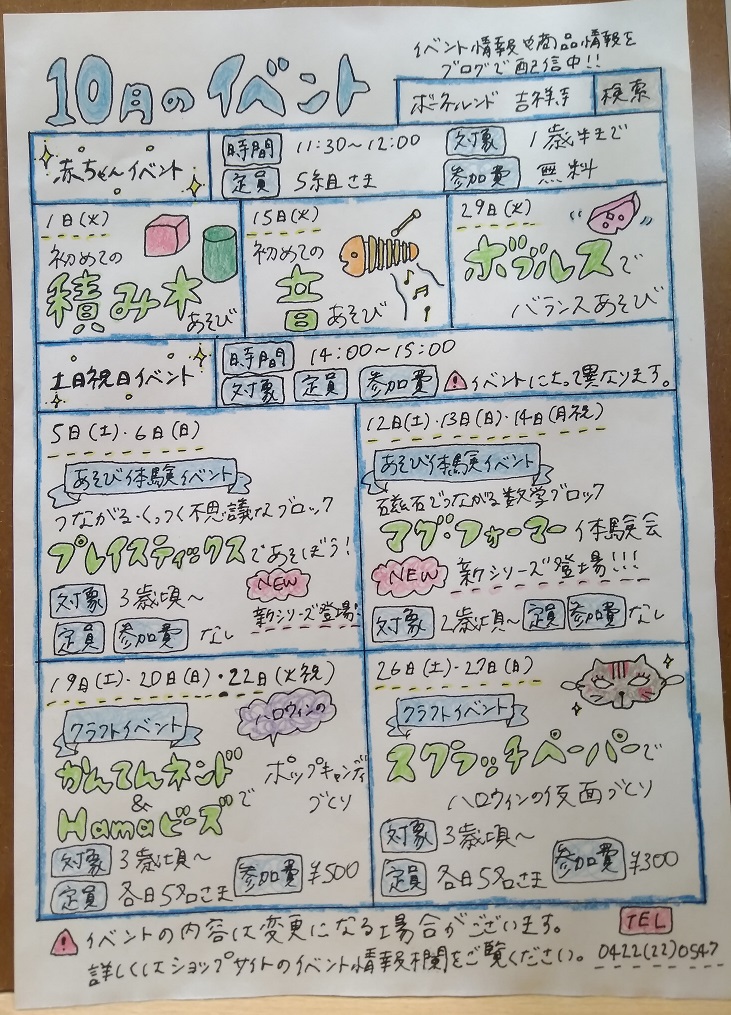 イベント情報や商品情報を
ブログで配信中!!
10月のイベント
ボーネルンド 吉祥寺 検索
赤ちゃんイベント
時間 11:30〜12:00 対象 1歳半まで
定員 5組さま 参加費 無料
1日(火)
初めての
積み木
あそび
15日(火)
初めての
音
あそび
29日(火)
ボブルスで
バランスあそび
土日祝日イベント
時間 14:00〜15:00
対象 定員 参加費 ⚠イベントによって異なります。
5日(土)・6日(日)
あそび体験イベント
つながる・くっつく不思議なブロック
プレイスティックスであそぼう!
対象 3歳頃〜
NEW
新シリーズ登場!
定員 参加費 なし
12日(土)・13日(日)・14日(月祝)
あそび体験イベント
磁石でつながる数学ブロック
マグ・フォーマー体験会
NEW 新シリーズ登場!!!
対象 2歳頃〜 定員 参加費 なし
19日(土)・20日(日)・22日(火祝)
クラフトイベント
ハロウィンの
かんてんネンド
&
Hamaビーズで
ポップキャンディ
づくり
対象 3歳頃〜
定員 各日5名さま
参加費 ¥500
26日(土)・27日(日)
クラフトイベント
スクラッチペーパーで
ハロウィンの仮面づくり
対象 3歳頃〜
定員 各日5名さま
参加費 ¥300
⚠イベントの内容は変更になる場合がございます。
詳しくはショップサイトのイベント情報欄をご覧ください。
TEL
0422(22)0547